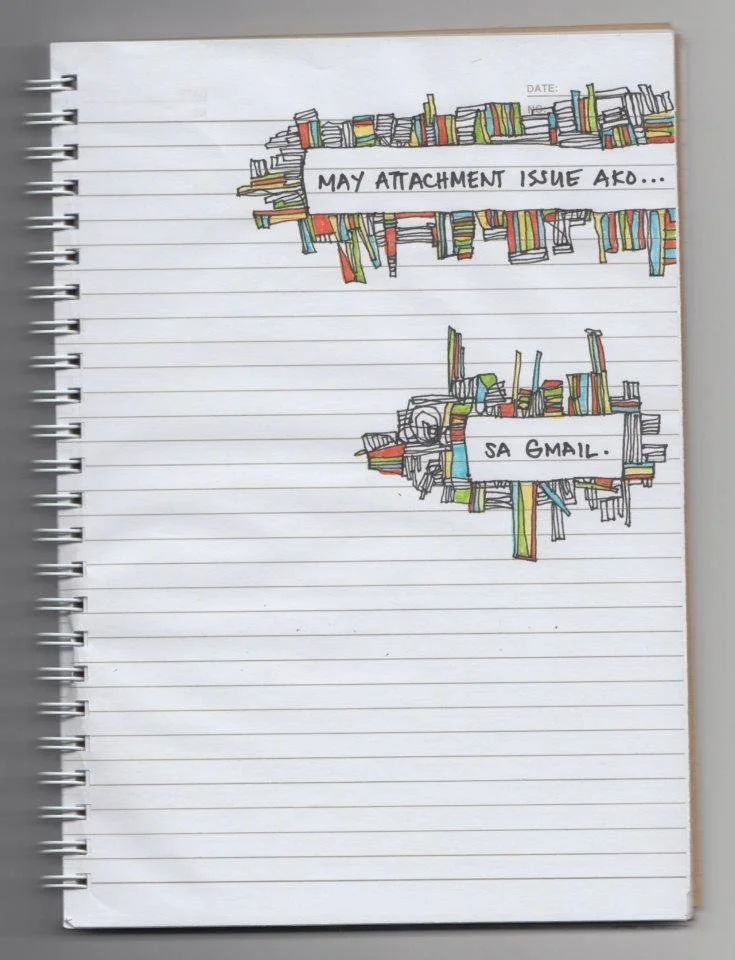 DATE:
NO
MAY ATTACHMENT ISSUE AKO...
SA GMAIL.